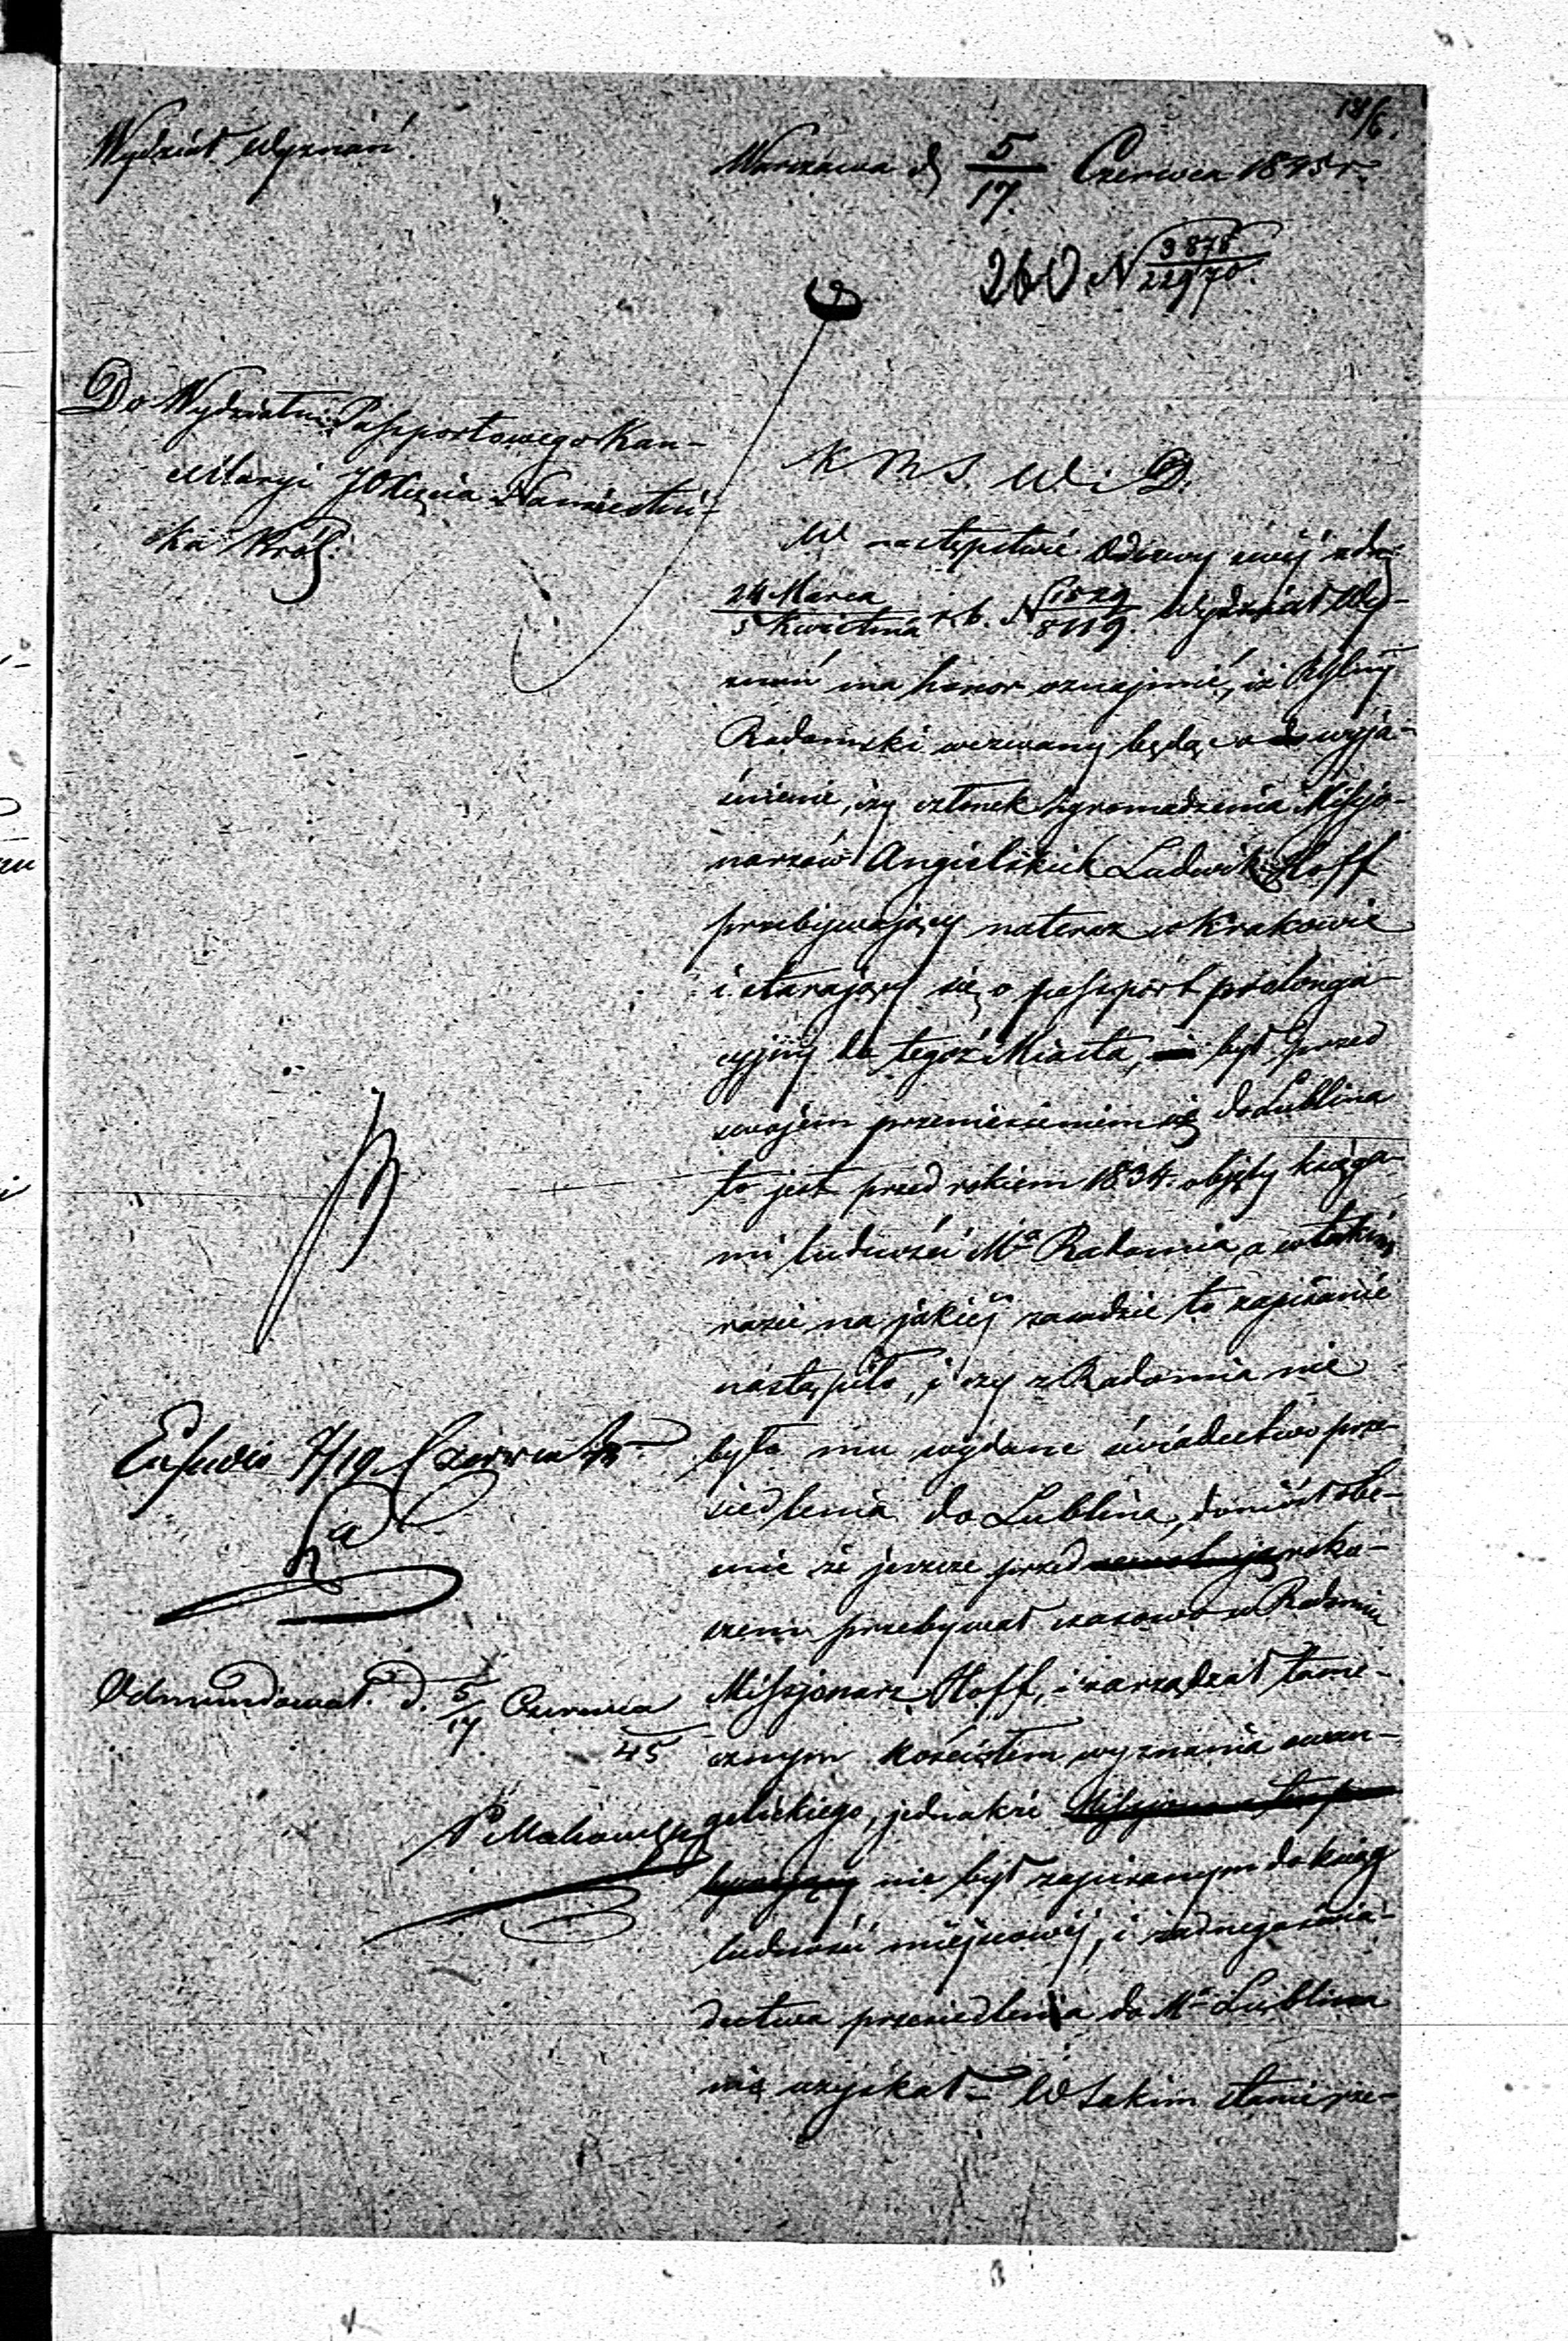 18/6.
Wydział Wyznań
Warszawa d. 5/17 Czerwca 1845 r.
260 N 3878/22970.
Do Wydziału Passportowego Kan-
cellaryi JO Xięcia Namiestni-
ka Król.
K R S. W i D.
W następstwie Odezwy swéj z dn.
24 Marca/5 Kwietnia r. b. N 1529/8119. Wydział Wy-
znań ma honor oznajmić, iż Rząd Gubny
Radomski wezwany będąc o wyja-
śnienie, czy członek Zgromadzenia Missjo-
narzów Angielskich Ludwik Hoff
przebywający nateraz w Krakowie
i starający się o passport prolonga-
cyjny do tegoż Miasta, był przed
swojém przeniesieniem się do Lublina
to jest przed rokiem 1834. objęty księga-
mi ludności Mta Radomia, a w takim
razie na jakiéj zasadzie to zapisanie
nastąpiło, i czy z Radomia nie
było mu wydane świadectwo prze-
siedlenia do Lublina, doniósł obe-
cnie że jeszcze przed roko-
szem przebywał czasowo w Radomiu
Missjonarz Hoff, i zarządzał tame-
cznym kościołem wyznania ewan-
gelickiego, jednakże
nie był zapisanym do ksiąg
ludności miéjscowéj, i żadnego świa-
dectwa przesiedlenia do Mta Lublina
nie uzyskał – W takim stanie rze-
7/19 Czerwca
Odmundował. d. 5/17 Czerwca
45